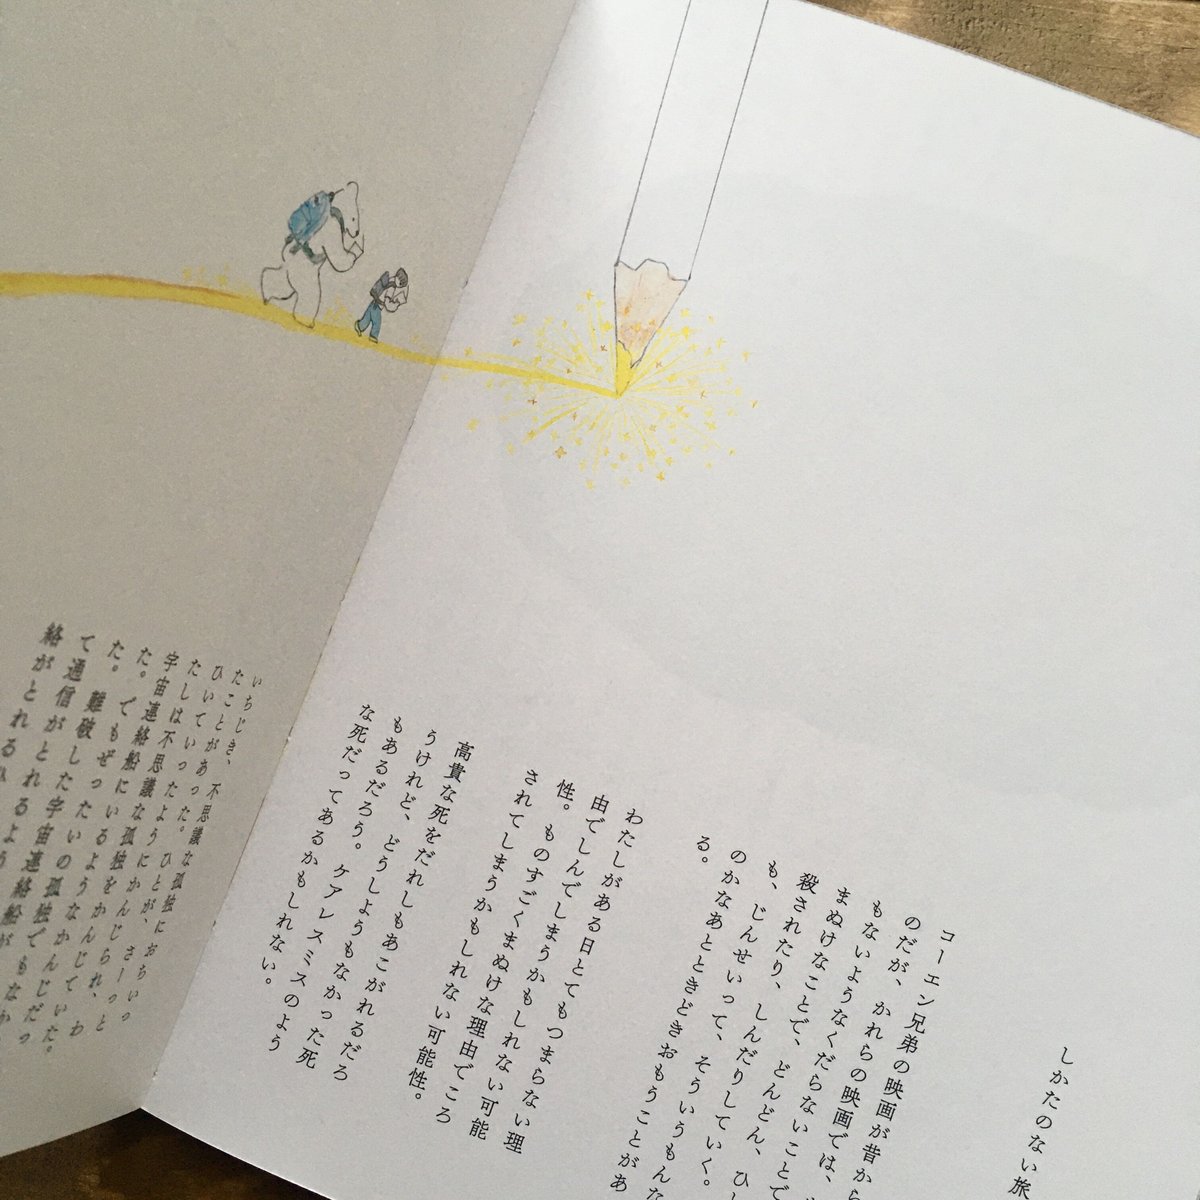 しかたのない旅
コーエン兄弟の映画が昔から
のだが、かれらの映画では、
もないようなくだらないことで
まぬけなことで、どんどん、ひ
殺されたり、しんだりしていく。
も、じんせいって、そういうもんな
のかなあとときどきおもうことがあ
る。
わたしがある日とてもつまらない理
由でしんでしまうかもしれない可能
性。ものすごくまぬけな理由でころ
されてしまうかもしれない可能性。
高貴な死をだれしもあこがれるだろ
うけれど、どうしようもなかった死
もあるだろう。ケアレスミスのよう
な死だってあるかもしれない。
いちじき、不思議な孤独におちいっ
たことがあった。ひとが、さーっと
ひいていったようにかんじられ、わ
たしは不思議な孤独をかんじていた。
宇宙連絡船にいるようなかんじだっ
た。でもぜったいの孤独
た。難破した宇宙連絡船が
て通信がとれるよう
絡がとれる